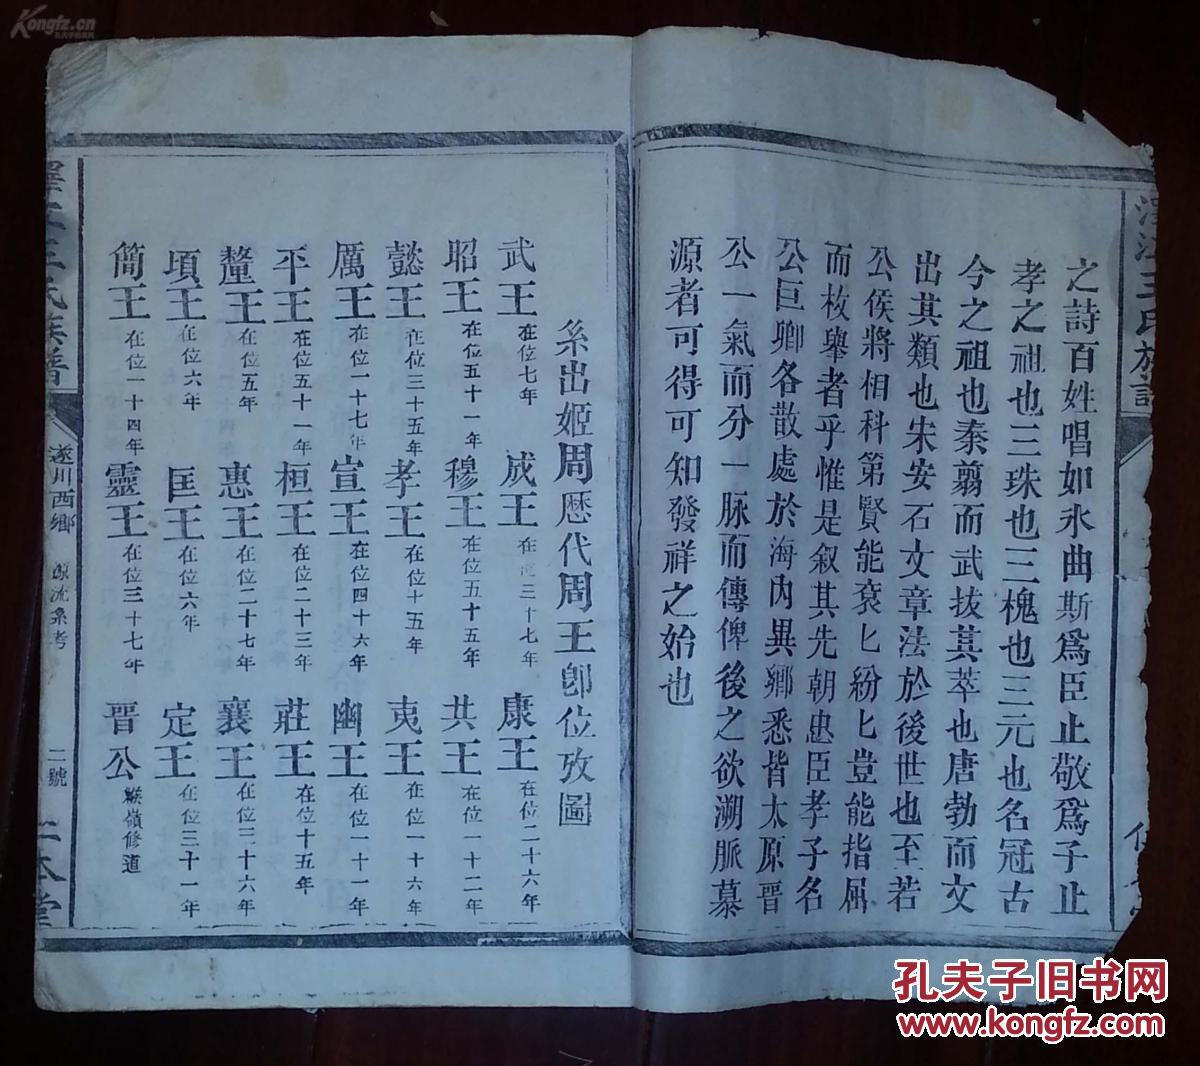 之詩百姓唱如氷曲斯爲臣止敬爲子止
孝之祖也三珠也三槐也三元也名冠古
今之祖也秦翦而武拔其萃也唐勃而文
出其類也宋安石文章法於後世也至若
公侯將相科第賢能袞匕紛匕豈能指屈
而枚舉者乎惟是叙其先朝忠臣孝子名
公巨卿各散處於海内異鄉悉皆太原晉
公一氣而分一脉而傳俾後之欲溯脈慕
源者可得可知發祥之始也
系出姬周歷代周王卽位攷圖
武王在位七年 成王在三十七年 康王在位二十六年
昭王在位五十一年 穆王在位五十五年 共王在位一十二年
懿王在位三十五年 孝王在位十五年 夷王在位一十六年
厲王在位一十七年 宣王在位四十六年 幽王在位一十一年
平王在位五十一年 桓王在位二十三年 莊王在位十五年
釐王在位五年 惠王在位二十七年 襄王在位三十六年
頃王在位六年 匡王在位六年 定王在位三十一年
簡王在位一十四年 靈王在位三十七年 晉公緱嶺修道
王氏族譜
遂川西鄉 源流系考 二號
本堂
Kongfz.cn
孔夫子旧书网
孔夫子旧书网
www.kongfz.com